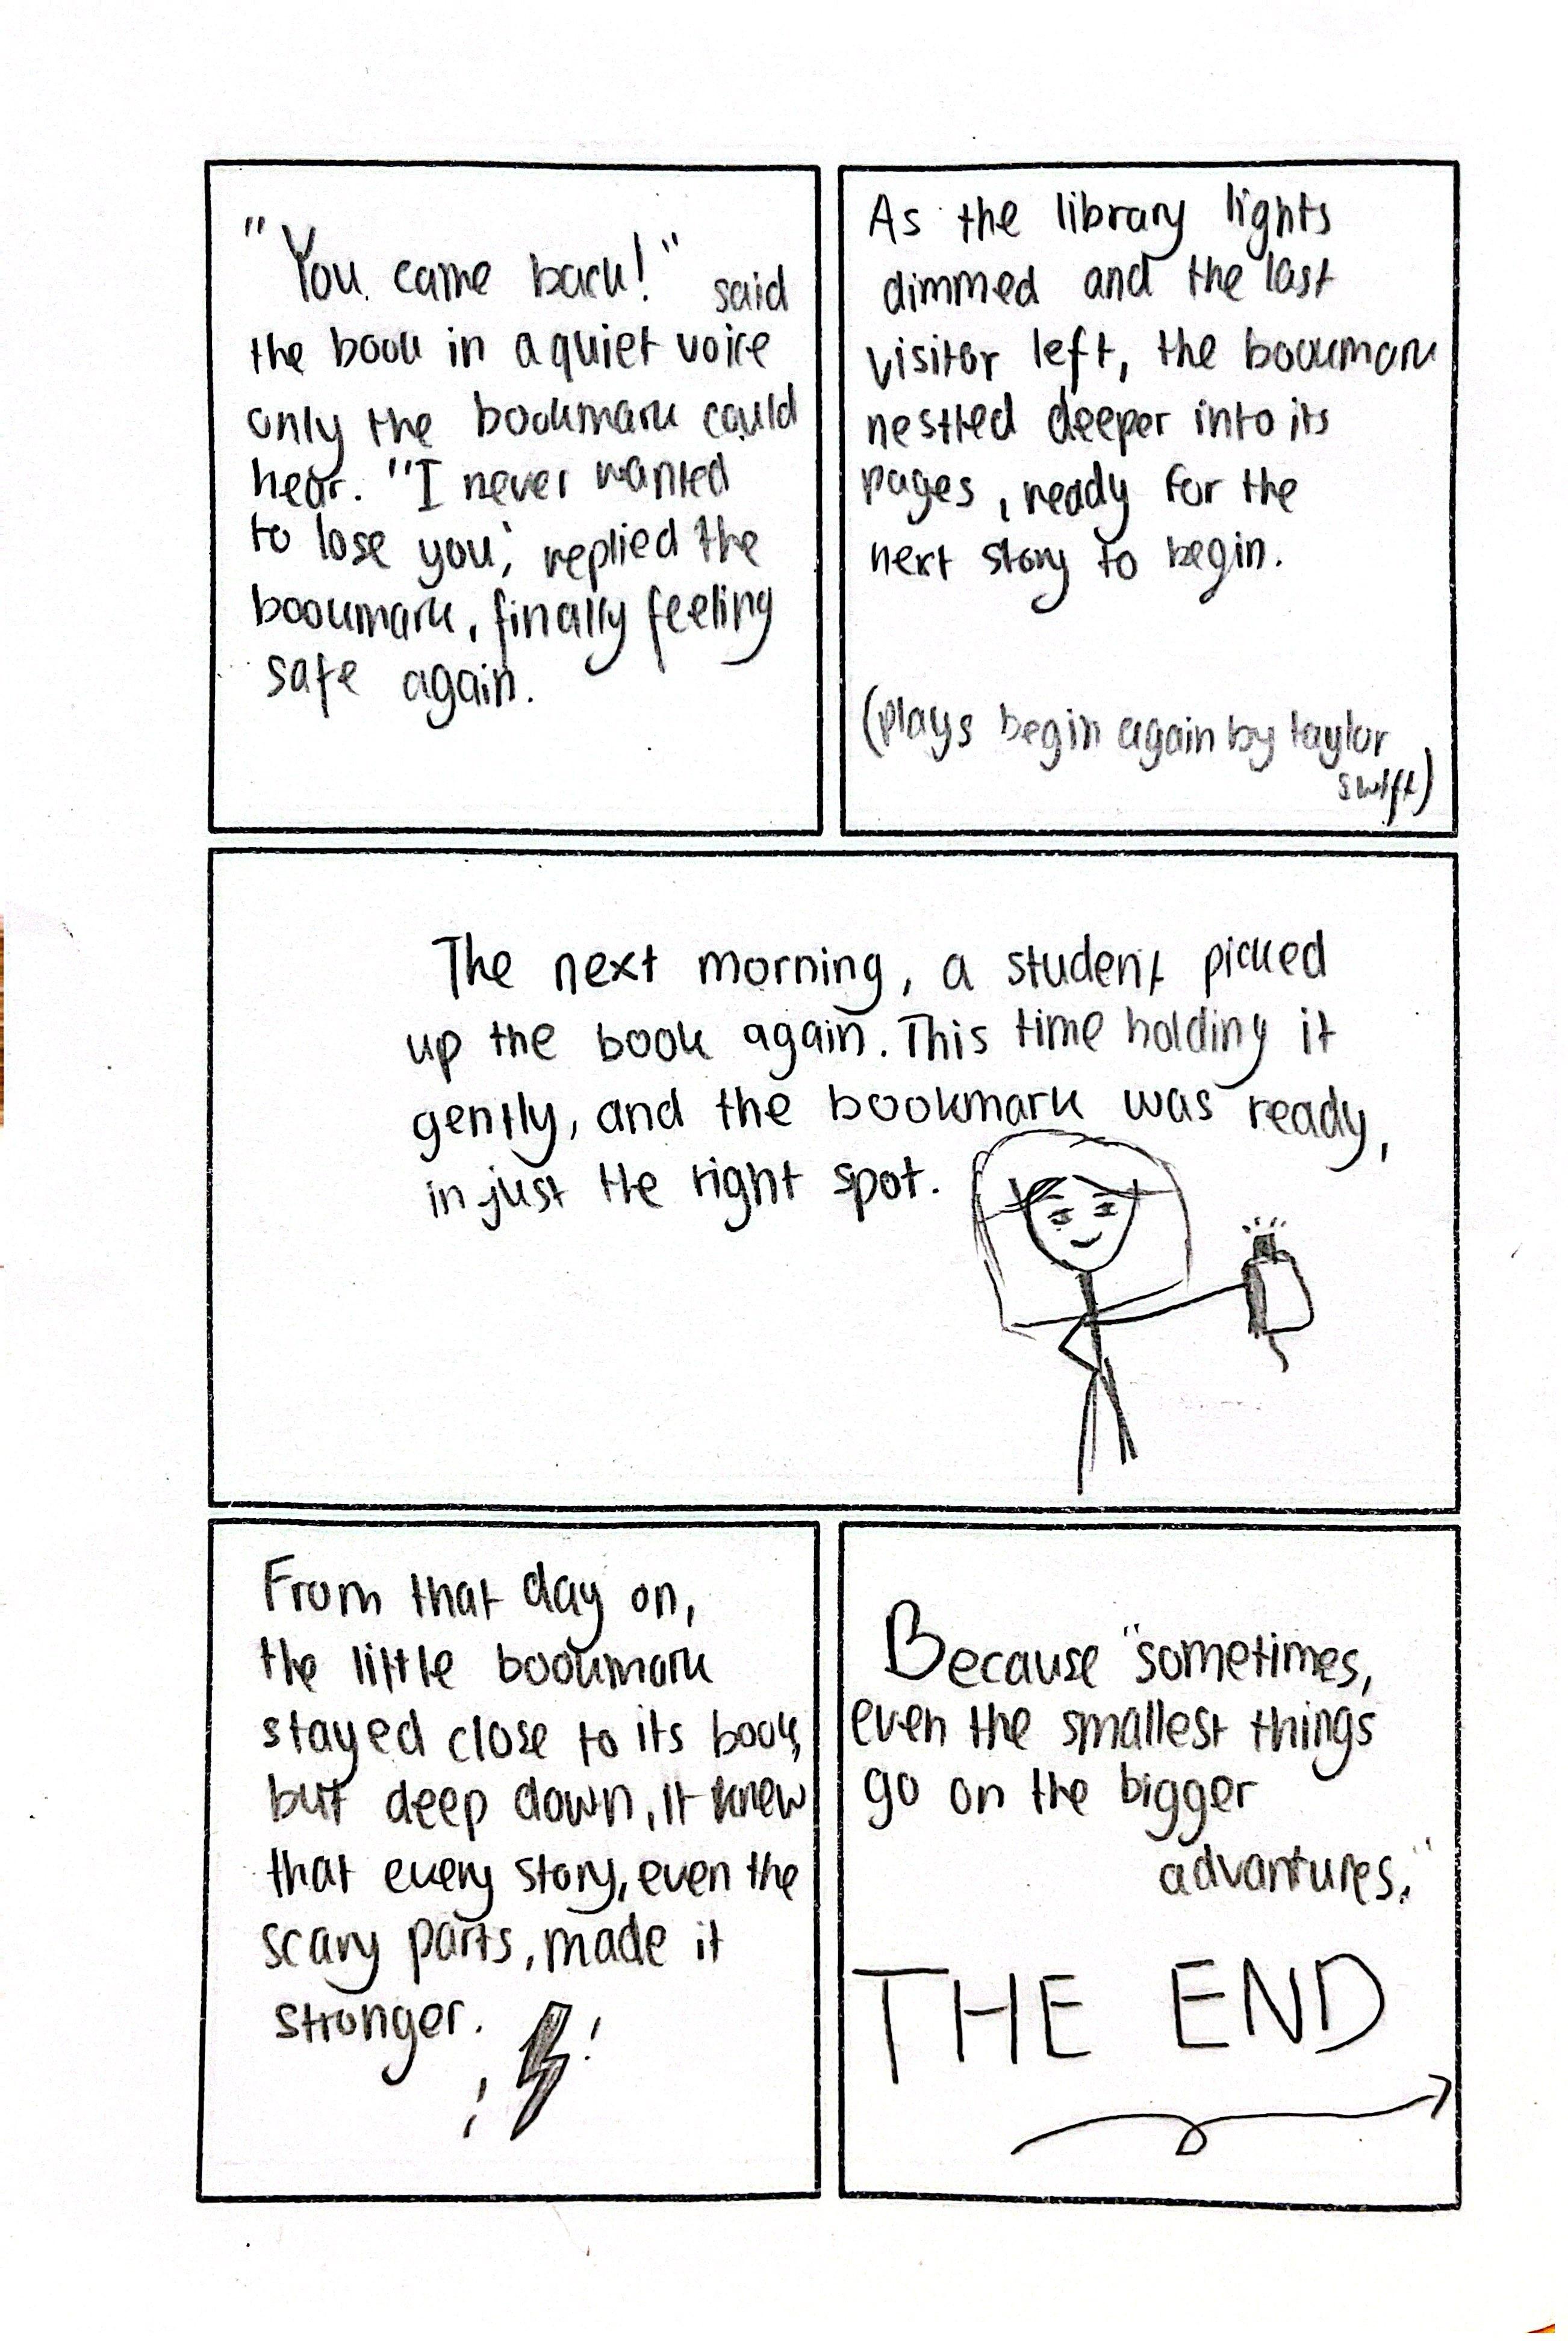 "You came back!" said
the book in a quiet voice
only the bookmark could
hear. "I never wanted
to lose you," replied the
bookmark, finally feeling
safe again.
As the library lights
dimmed and the last
visitor left, the bookmark
nestled deeper into its
pages, ready for the
next story to begin.
(plays begin again by taylor
swift)
The next morning, a student picked
up the book again. This time holding it
gently, and the bookmark was ready,
in just the right spot.
From that day on,
the little bookmark
stayed close to its book,
but deep down, it knew
that every story, even the
scary parts, made it
stronger.
Because "sometimes,
even the smallest things
go on the bigger
advantures."
THE END